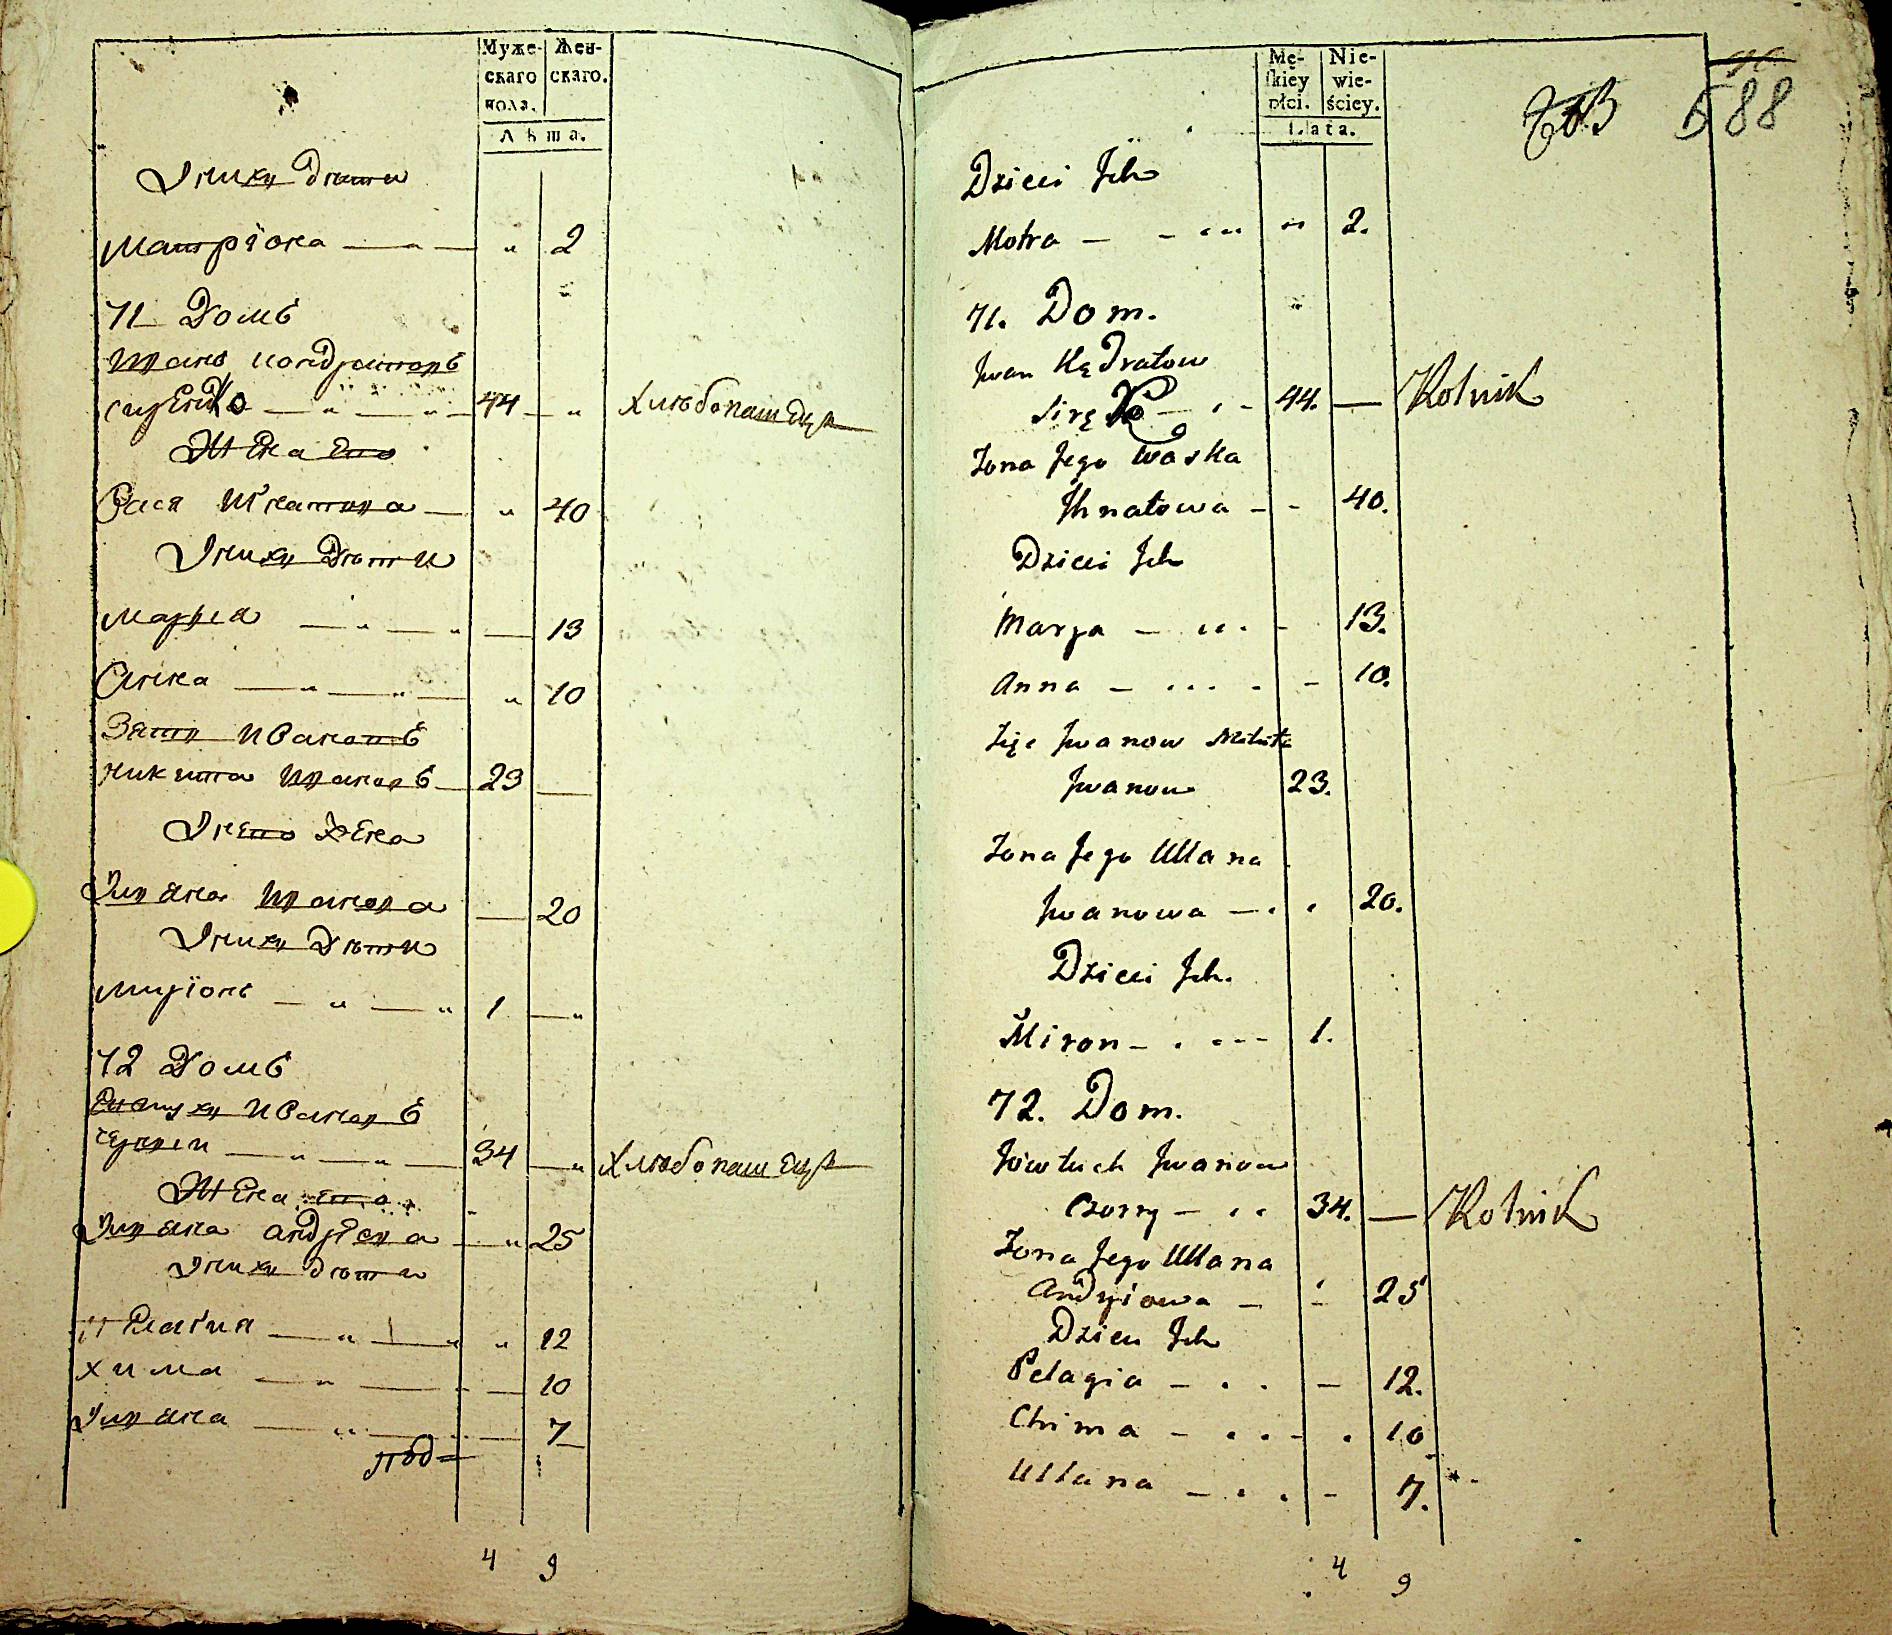 Муже-
скаго
пола.
Жен-
скаго.
Лѣта.
Ихъ дѣти
Матрiона 2
71 Домъ
Иванъ Кондратовъ
44 Хлѣбопашецъ
Жена его
Вася Игнатова 40
Ихъ дѣти
Марiя 13
Анна 10
Зять Ивановъ
Никита Ивановъ 23
Его жена
Ульяна Иванова 20
Ихъ дѣти
Миронъ 1
72 Домъ
Евтухъ Ивановъ
Черны 34 Хлѣбопашецъ
Жена его
Ульяна Андрiева 25
Ихъ дѣти
Пелагiя 12
Хима 10
Ульяна 7
4 9
Mę-
skiey
płci.
Nie-
wie-
ściey.
Lata.
588
Dzieci Ich
Motra 2.
71. Dom.
Jwan Kędratow
44. Rolnik
Żona Jego Waska
Jhnatowa 40.
Dzieci Ich
Marya 13.
Anna 10.
Zięć Jwanow Mikita
Jwanow 23.
Żona Jego Ullana
Jwanowa 20.
Dzieci Ich.
Miron 1.
72. Dom.
Jówtuch Jwanow
Czorny 34. Rolnik
Żona Jego Ullana
Andryiowa 25
Dzieci Ich
Pelagia 12.
Chima 10
Ullana 7.
4 9